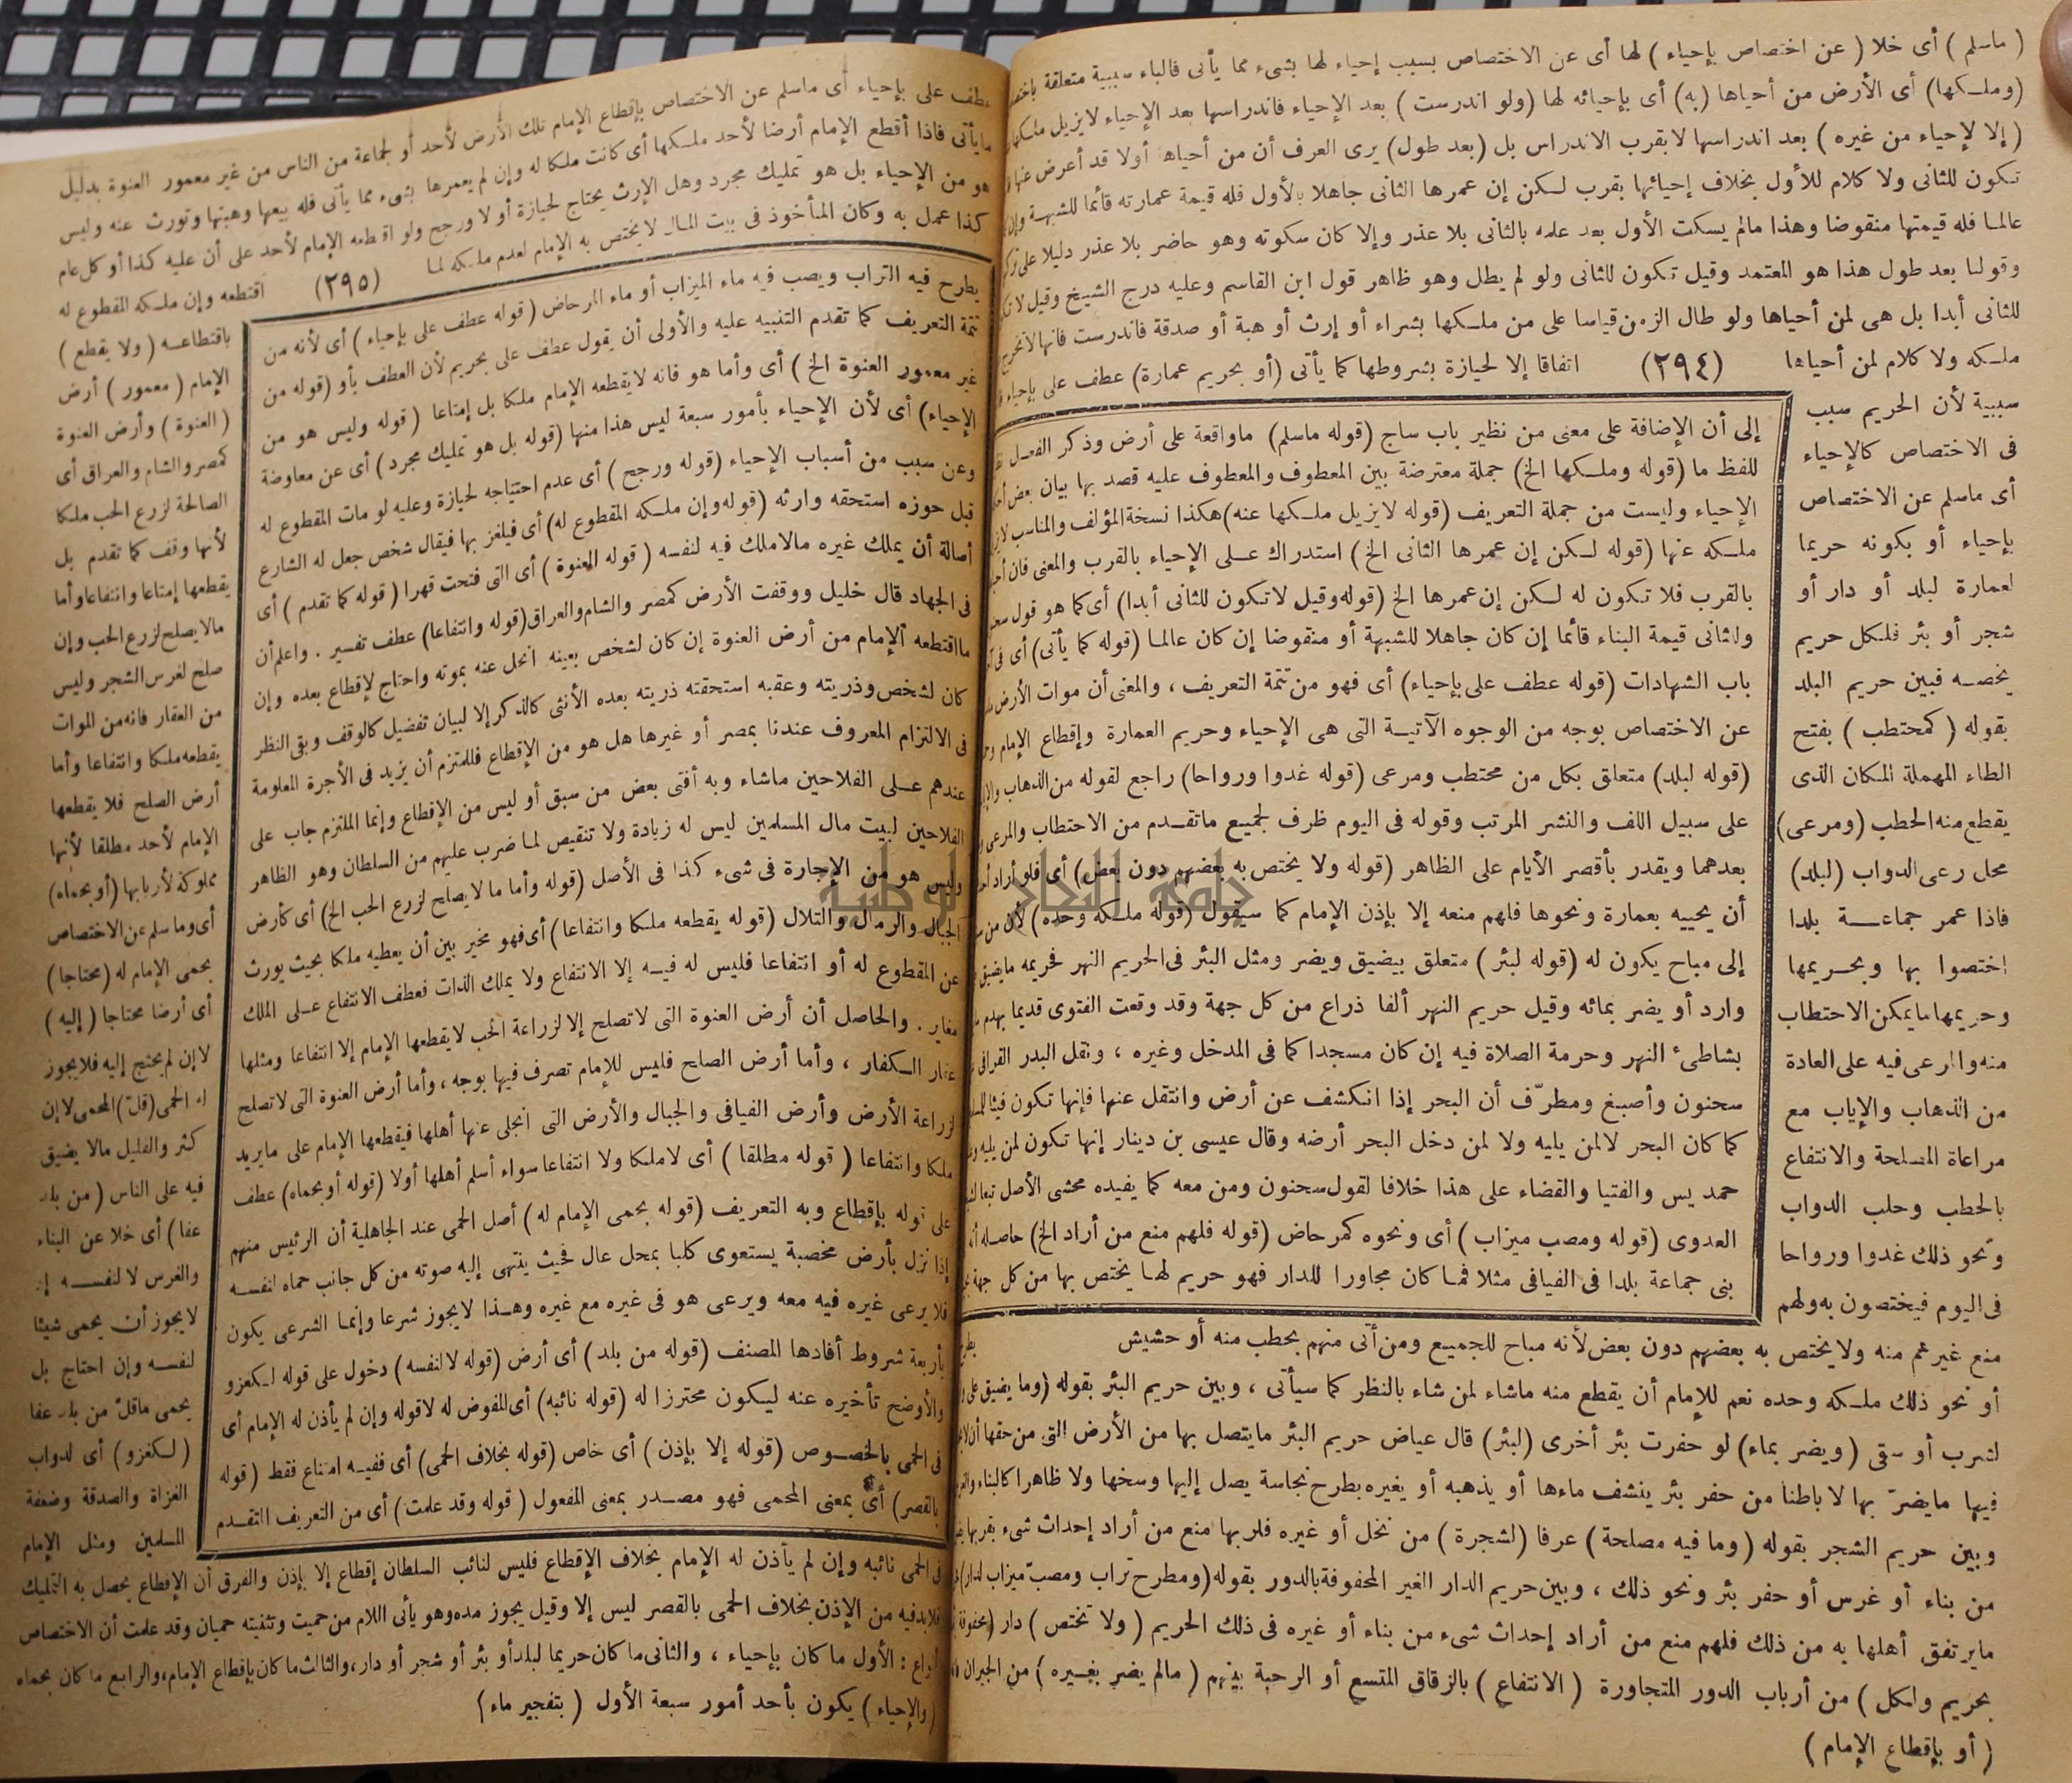 ( ماسلم ) أى خلا ( عن اختصاص بإحياء ) لها أى عن الاختصاص بسبب إحياء لها بشىء مما يأتى فالباء سببية متعلقة
(وملـكها) أى الأرض من أحياها (به) أى بإحيائه لها (ولو اندرست ) بعد الإحياء فاندراسها بعد الإحياء لايزيل ملـكها
( إلا لإحياء من غيره ) بعد اندراسها لا بقرب الاندراس بل (بعد طول) يرى العرف أن من أحياها أولا قد أعرض عنها
تـكون للثانى ولا كلام للأول بخلاف إحيائها بقرب لـكن إن عمرها الثانى جاهلا بالأول فله قيمة عمارته قائما للشبهـة وإن
عالمـا فله قيمتها منقوضا وهذا مالم يسكت الأول بعد علمه بالثانى بلا عذر وإلا كان سكوته وهو حاضر بلا عذر دليلا على
وقولنا بعد طول هذا هو المعتمد وقيل تـكون للثانى ولو لم يطل وهو ظاهر قول ابن القاسم وعليه درج الشيخ وقيل
للثانى أبدا بل هى لمن أحياها ولو طال الزمن قياسا على من ملـكها بشراء أو إرث أو هبة أو صدقة فاندرست فانها لا تخرج
ملـكه ولا كلام لمن أحياها (٢٩٤) اتفاقا إلا لحيازة بشروطها كما يأتى (أو بحريم عمارة) عطف على بإحياء
سببية لأن الحريم سبب
فى الاختصاص كالإحياء
أى ماسلم عن الاختصاص
بإحياء أو بكونه حريما
لعمارة لبلد أو دار أو
شجر أو بئر فلـكل حريم
يخصـه فبين حريم البلد
بقوله ( كمحتطب ) بفتح
الطاء المهملة المـكان الذى
يقطع منه الحطب (ومرعى)
محل رعى الدواب (لبلد)
فاذا عمر جماعــة بلدا
اختصوا بها وبحـريمها
وحريمها ما يمكن الاحتطاب
منه والرعى فيه على العادة
من الذهاب والإياب مع
مراعاة المصلحة والانتفاع
بالحطب وحلب الدواب
ونحو ذلك غدوا ورواحا
فى اليوم فيختصون به ولهم
إلى أن الإضافة على معنى من نظير باب ساج (قوله ماسلم) ماواقعة على أرض وذكر الفعـل
للفظ ما (قوله وملـكها الخ) جملة معترضة بين المعطوف والمعطوف عليه قصد بها بيان بعض
الإحياء وليست من جملة التعريف (قوله لايزيل ملـكها عنه) هكذا نسخة المؤلف والمناسب
ملـكه عنها (قوله لـكن إن عمرها الثانى الخ) استدراك عـلى الإحياء بالقرب والمعنى فان
بالقرب فلا تـكون له لـكن إن عمرها الخ (قوله وقيل لا تـكون للثانى أبدا) أى كما هو قول
وللثانى قيمة البناء قائما إن كان جاهلا للشبهة أو منقوضا إن كان عالمـا (قوله كما يأتى) أى فى
باب الشهادات (قوله عطف على بإحياء) أى فهو من تتمة التعريف ، والمعنى أن موات الأرض
عن الاختصاص بوجه من الوجوه الآتيـة التى هى الإحياء وحريم العمارة وإقطاع الإمام
(قوله لبلد) متعلق بكل من محتطب ومرعى (قوله غدوا ورواحا) راجع لقوله من الذهاب
على سبيل اللف والنشر المرتب وقوله فى اليوم ظرف لجميع ماتقـدم من الاحتطاب والمرعى
بعدهما ويقدر بأقصر الأيام على الظاهر (قوله ولا يختص به بعضهم دون بعض) أى فلو أراد
أن يحييه بعمارة ونحوها فلهم منعه إلا بإذن الإمام كما سيقول (قوله ملـكه وحده) لأن من
إلى مباح يكون له (قوله لبئر) متعلق بيضيق ويضر ومثل البئر فى الحريم النهر فحريمه مايضيق
وارد أو يضر بمائه وقيل حريم النهر ألفا ذراع من كل جهة وقد وقعت الفتوى قديما بهدم
بشاطىء النهر وحرمة الصلاة فيه إن كان مسجدا كما فى المدخل وغيره ، ونقل البدر القرافى
سحنون وأصبغ ومطرّف أن البحر إذا انكشف عن أرض وانتقل عنها فإنها تـكون فيئا
كما كان البحر لا لمن يليه ولا لمن دخل البحر أرضه وقال عيسى بن دينار إنها تـكون لمن يليه
حمد يس والفتيا والقضاء على هذا خلافا لقول سحنون ومن معه كما يفيده محشى الأصل
العدوى (قوله ومصب ميزاب ) أى ونحوه كمرحاض (قوله فلهم منع من أراد الخ) حاصـله
بنى جماعة بلدا فى الفيافى مثلا فمـا كان مجاورا للدار فهو حريم لهـا يختص بها من كل جهة
منع غيرهم منه ولا يختص به بعضهم دون بعض لأنه مباح للجميـع ومن أتى منهم بحطب منه أو حشيش
أو نحو ذلك ملـكه وحده نعم للإمام أن يقطع منه ماشاء لمن شاء بالنظر كما سيأتى ، وبين حريم البئر بقوله (وما يضيق على
لشرب أو سقى (ويضر بماء) لو حفرت بئر أخرى (لبئر) قال عياض حريم البئر مايتصل بها من الأرض التى من حقها أن
فيها مايضرّ بها لا باطنا من حفر بئر ينشف ماءها أو يذهبه أو يغيره بطرح نجاسة يصل إليها وسخها ولا ظاهرا كالبناء
وبين حريم الشجر بقوله ( وما فيه مصلحة ) عرفا (لشجرة ) من نخل أو غيره فلربها منع من أراد إحداث شىء بقربها
من بناء أو غرس أو حفر بئر ونحو ذلك ، وبين حريم الدار الغير المحفوفة بالدور بقوله (ومطرح تراب ومصبّ ميزاب لدار)
مايرتفق أهلها به من ذلك فلهم منع من أراد إحداث شىء من بناء أو غيره فى ذلك الحريم ( ولا تختص ) دار (محفوفة
بحريم ولـكل ) من أرباب الدور المتجاورة ( الانتفاع ) بالزقاق المتسع أو الرحبة بينهم ( مالم يضر بغـيره ) من الجيران
( أو بإقطاع الإمام )
عطف على بإحياء أى ماسلم عن الاختصاص بإقطاع الإمام تلك الأرض لأحد أو لجماعة من الناس من غير معمور العنوة بدليل
مايأتى فاذا أقطع الإمام أرضا لأحد ملـكها أى كانت ملـكا له وإن لم يعمرها بشىء مما يأتى فله بيعها وهبتها وتورث عنه وليس
هو من الإحياء بل هو تمليك مجرد وهل الإرث يحتاج لحيازة أو لا ورجح ولو اقطعه الإمام لأحد على أن عليه كذا أو كل عام
كذا عمل به وكان المـأخوذ فى بيت المـال لا يختص به الإمام لعدم ملـكه لمـا (٢٩٥) اقتطعه وإن ملـكه المقطوع له
باقتطاعـه ( ولا يقطع )
الإمام ( معمور ) أرض
( العنوة ) وأرض العنوة
كمصر والشام والعراق أى
الصالحة لزرع الحب ملكا
لأنها وقف كما تقدم بل
يقطعها إمتاعا وانتفاعا وأما
مالا يصلح لزرع الحب وإن
صلح لغرس الشجر وليس
من العقار فانه من الموات
يقطعه ملـكا وانتفاعا وأما
أرض الصلح فلا يقطعها
الإمام لأحد مطلقا لأنها
مملوكة لأربابها (أو بحماه)
أى وما سلم عن الاختصاص
بحمى الإمام له (محتاجا)
أى أرضا محتاجا ( إليه )
لا إن لم يحتج إليه فلا يجوز
له الحمى (قلّ) المحمى لا إن
كثر والقليل مالا يضيق
فيه على الناس ( من بلد
عفا ) أى خلا عن البناء
والغرس لا لنفســه إذ
لا يجوز أن يحمى شيئا
لنفسـه وإن احتاج بل
يحمى ماقلّ من بلد عفا
( لـكغزو ) أى لدواب
الغزاة والصدقة وضعفة
المسلمين ومثل الإمام
يطرح فيه التراب ويصب فيه ماء الميزاب أو ماء المرحاض (قوله عطف على بإحياء) أى لأنه من
تتمة التعريف كما تقدم التنبيه عليه والأولى أن يقول عطف على بحريم لأن العطف بأو (قوله من
غير معمور العنوة الخ) أى وأما هو فانه لا يقطعه الإمام ملكا بل إمتاعا (قوله وليس هو من
الإحياء) أى لأن الإحياء بأمور سبعة ليس هذا منها (قوله بل هو تمليك مجرد) أى عن معاوضة
وعن سبب من أسباب الإحياء (قوله ورجح ) أى عدم احتياجه لحيازة وعليه لو مات المقطوع له
قبل حوزه استحقه وارثه (قوله وإن ملـكه المقطوع له) أى فيلغز بها فيقال شخص جعل له الشارع
أصالة أن يملك غيره مالا ملك فيه لنفسه ( قوله العنوة ) أى التى فتحت قهرا ( قوله كما تقدم ) أى
فى الجهاد قال خليل ووقفت الأرض كمصر والشام والعراق (قوله وانتفاعا) عطف تفسير . واعلم أن
ما اقتطعه الإمام من أرض العنوة إن كان لشخص بعينه انحل عنه بموته واحتاج لإقطاع بعده وإن
كان لشخص وذريته وعقبه استحقته ذريته بعده الأنثى كالذكر إلا لبيان تفضيل كالوقف وبقى النظر
فى الالتزام المعروف عندنا بمصر أو غيرها هل هو من الإقطاع فللملتزم أن يزيد فى الأجرة المعلومة
عندهم عـلى الفلاحين ماشاء وبه أفتى بعض من سبق أو ليس من الإقطاع وإنما الملتزم جاب على
الفلاحين لبيت مال المسلمين ليس له زيادة ولا تنقيص لمـا ضرب عليهم من السلطان وهو الظاهر
وليس هو من الإجارة فى شىء كذا فى الأصل (قوله وأما ما لا يصلح لزرع الحب الخ) أى كأرض
الجبال والرمال والتلال (قوله يقطعه ملـكا وانتفاعا) أى فهو مخير بين أن يعطيه ملكا بحيث يورث
عن المقطوع له أو انتفاعا فليس له فيـه إلا الانتفاع ولا يملك الذات فعطف الانتفاع عـلى الملك
مغاير . والحاصل أن أرض العنوة التى لاتصلح إلا لزراعة الحب لايقطعها الإمام إلا انتفاعا ومثلها
عقار الـكفار ، وأما أرض الصلح فليس للإمام تصرف فيها بوجه ، وأما أرض العنوة التى لا تصلح
لزراعة الأرض وأرض الفيافى والجبال والأرض التى انجلى عنها أهلها فيقطعها الإمام على مايريد
ملـكا وانتفاعا ( قوله مطلقا ) أى لا ملكا ولا انتفاعا سواء أسلم أهلها أولا (قوله أو بحماه) عطف
على قوله بإقطاع وبه التعريف (قوله بحمى الإمام له ) أصل الحمى عند الجاهلية أن الرئيس منهم
إذا نزل بأرض مخصبة يستعوى كلبا بمحل عال فحيث ينتهى إليه صوته من كل جانب حماه لنفســه
فلا يرعى غيره فيه معه ويرعى هو فى غيره مع غيره وهـذا لا يجوز شرعا وإنمـا الشرعى يكون
بأربعة شروط أفادها المصنف (قوله من بلد ) أى أرض (قوله لا لنفسه) دخول على قوله لـكغزو
والأوضح تأخيره عنه ليـكون محترزا له (قوله نائبه) أى المفوض له لا قوله وإن لم يأذن له الإمام أى
فى الحمى بالخصـوص (قوله إلا بإذن ) أى خاص (قوله بخلاف الحمى) أى ففيـه امتناع فقط (قوله
بالقصر) أى بمعنى المحمى فهو مصـدر بمعنى المفعول ( قوله وقد علمت ) أى من التعريف المتقـدم
فى الحمى نائبه وإن لم يأذن له الإمام بخلاف الإقطاع فليس لنائب السلطان إقطاع إلا بإذن والفرق أن الإقطاع يحصل به التمليك
فلا بد فيه من الإذن بخلاف الحمى بالقصر ليس إلا وقيل يجوز مده وهو يأتى اللام من حميت وتثنيته حميان وقد علمت أن الاختصاص
أنواع : الأول ما كان بإحياء ، والثانى ما كان حريما لبلد أو بئر أو شجر أو دار ، والثالث ما كان بإقطاع الإمام ، والرابع ما كان بحماه
( والإحياء ) يكون بأحد أمور سبعة الأول ( بتفجير ماء )